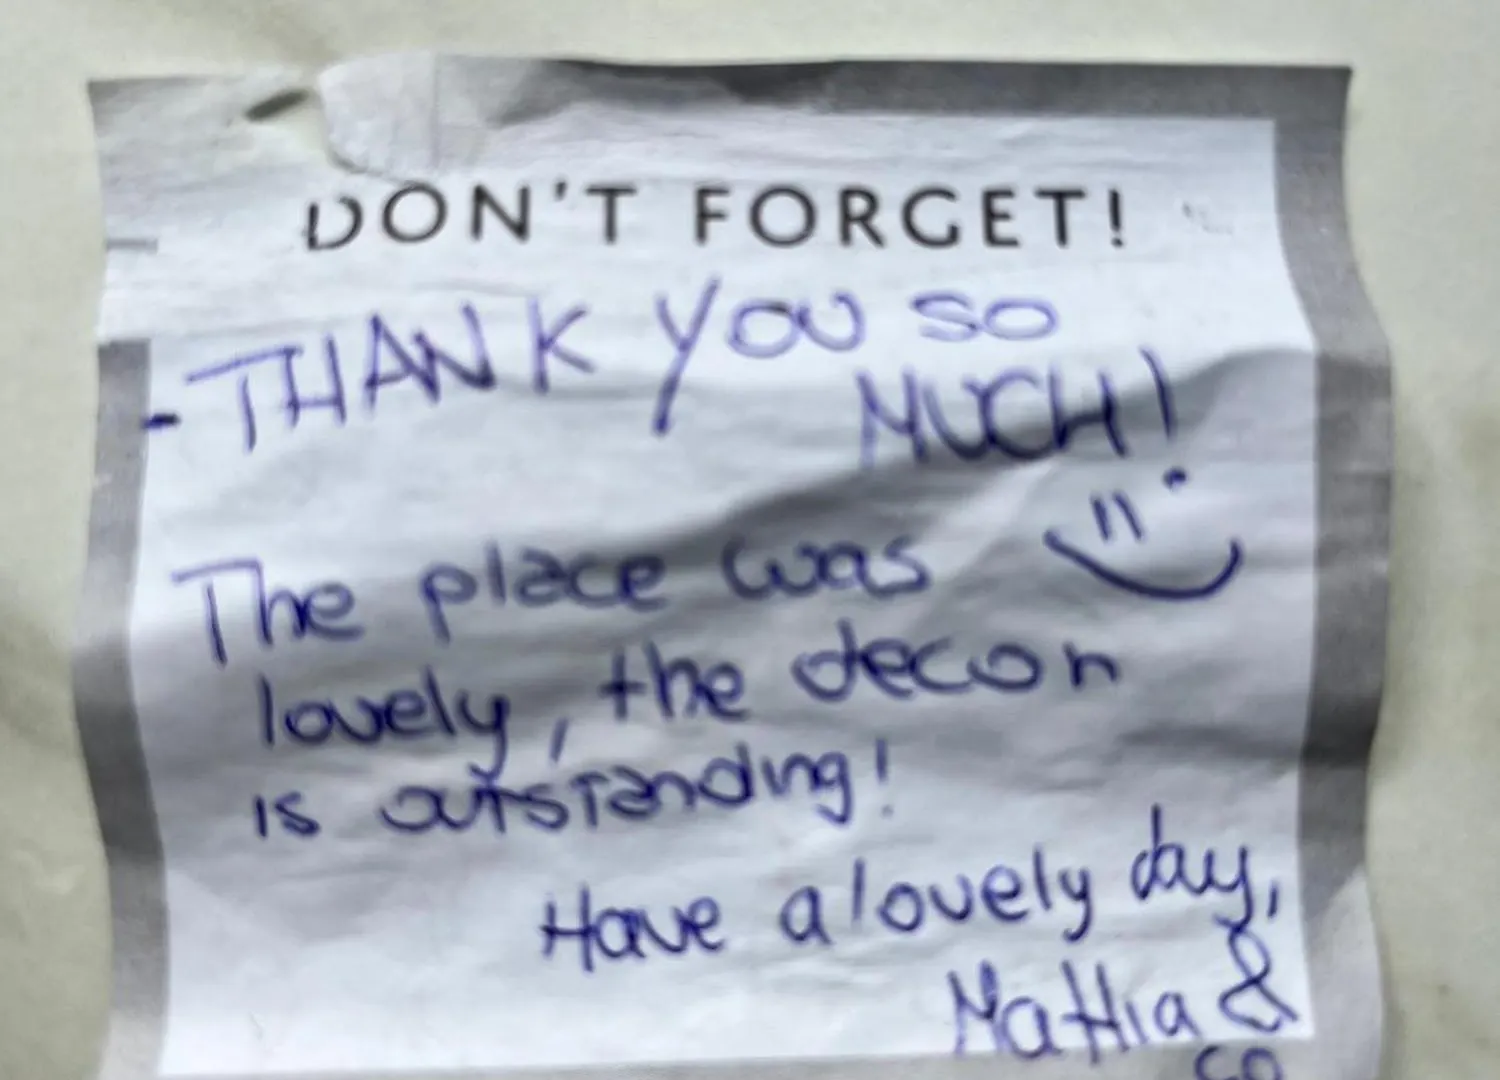 DON'T FORGET!
- THANK YOU SO
MUCH!
The place was
lovely, the decor
is outstanding!
Have a lovely day,
Mattia &
co